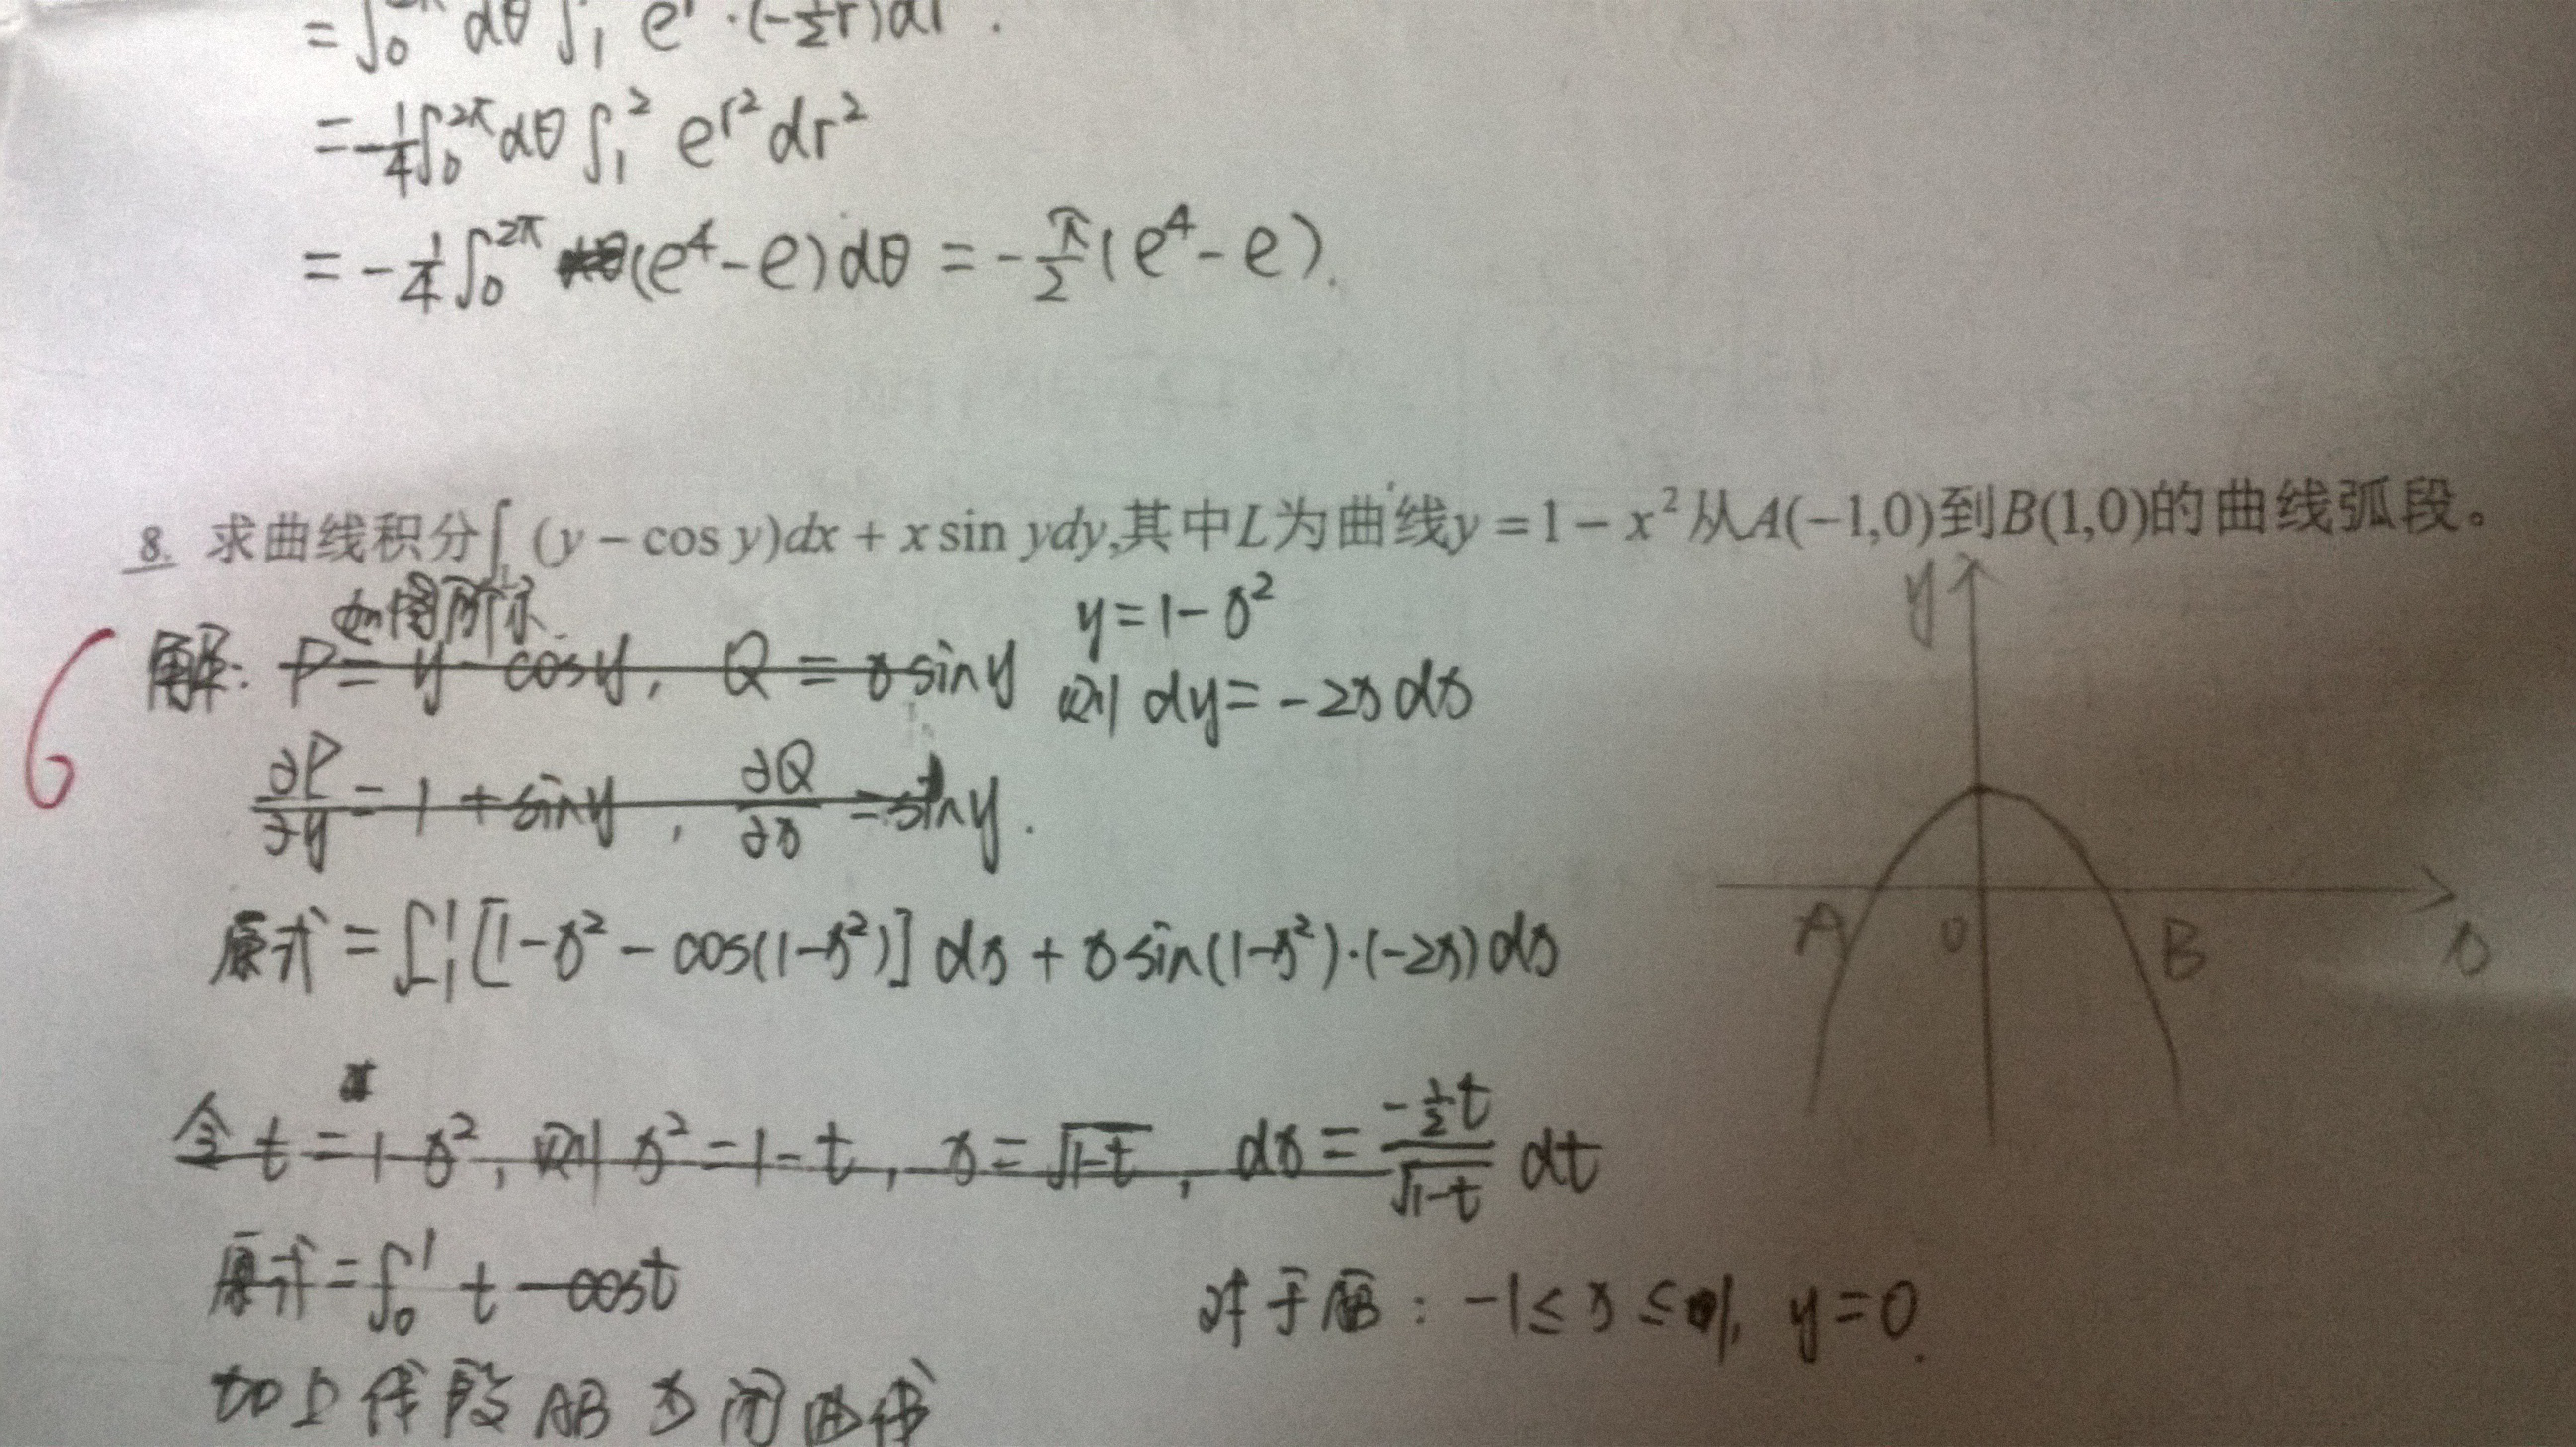 = ∫₀^{2π} dθ ∫₁ e^r · (-½r)dr .
= -¼∫₀^{2π} dθ ∫₁² e^{r²} dr²
= -¼∫₀^{2π} (e⁴-e)dθ = -π/2 (e⁴-e).
8. 求曲线积分∫_L (y-cos y)dx + x sin ydy,其中L为曲线y=1-x²从A(-1,0)到B(1,0)的曲线弧段。
如图所示
y=1-x²
y
6
解: P=y-cosy, Q=xsiny
则 dy=-2xdx
∂P/∂y=1+siny, ∂Q/∂x=siny.
A O B x
原式=∫₋₁¹[1-x²-cos(1-x²)]dx+xsin(1-x²)·(-2x)dx
令t=1-x²,则x²=1-t, x=√(1-t), dx=(-½t)/√(1-t) dt
原式=∫₀¹ t-cost
对于AB: -1≤x≤1, y=0.
加上线段AB为闭曲线